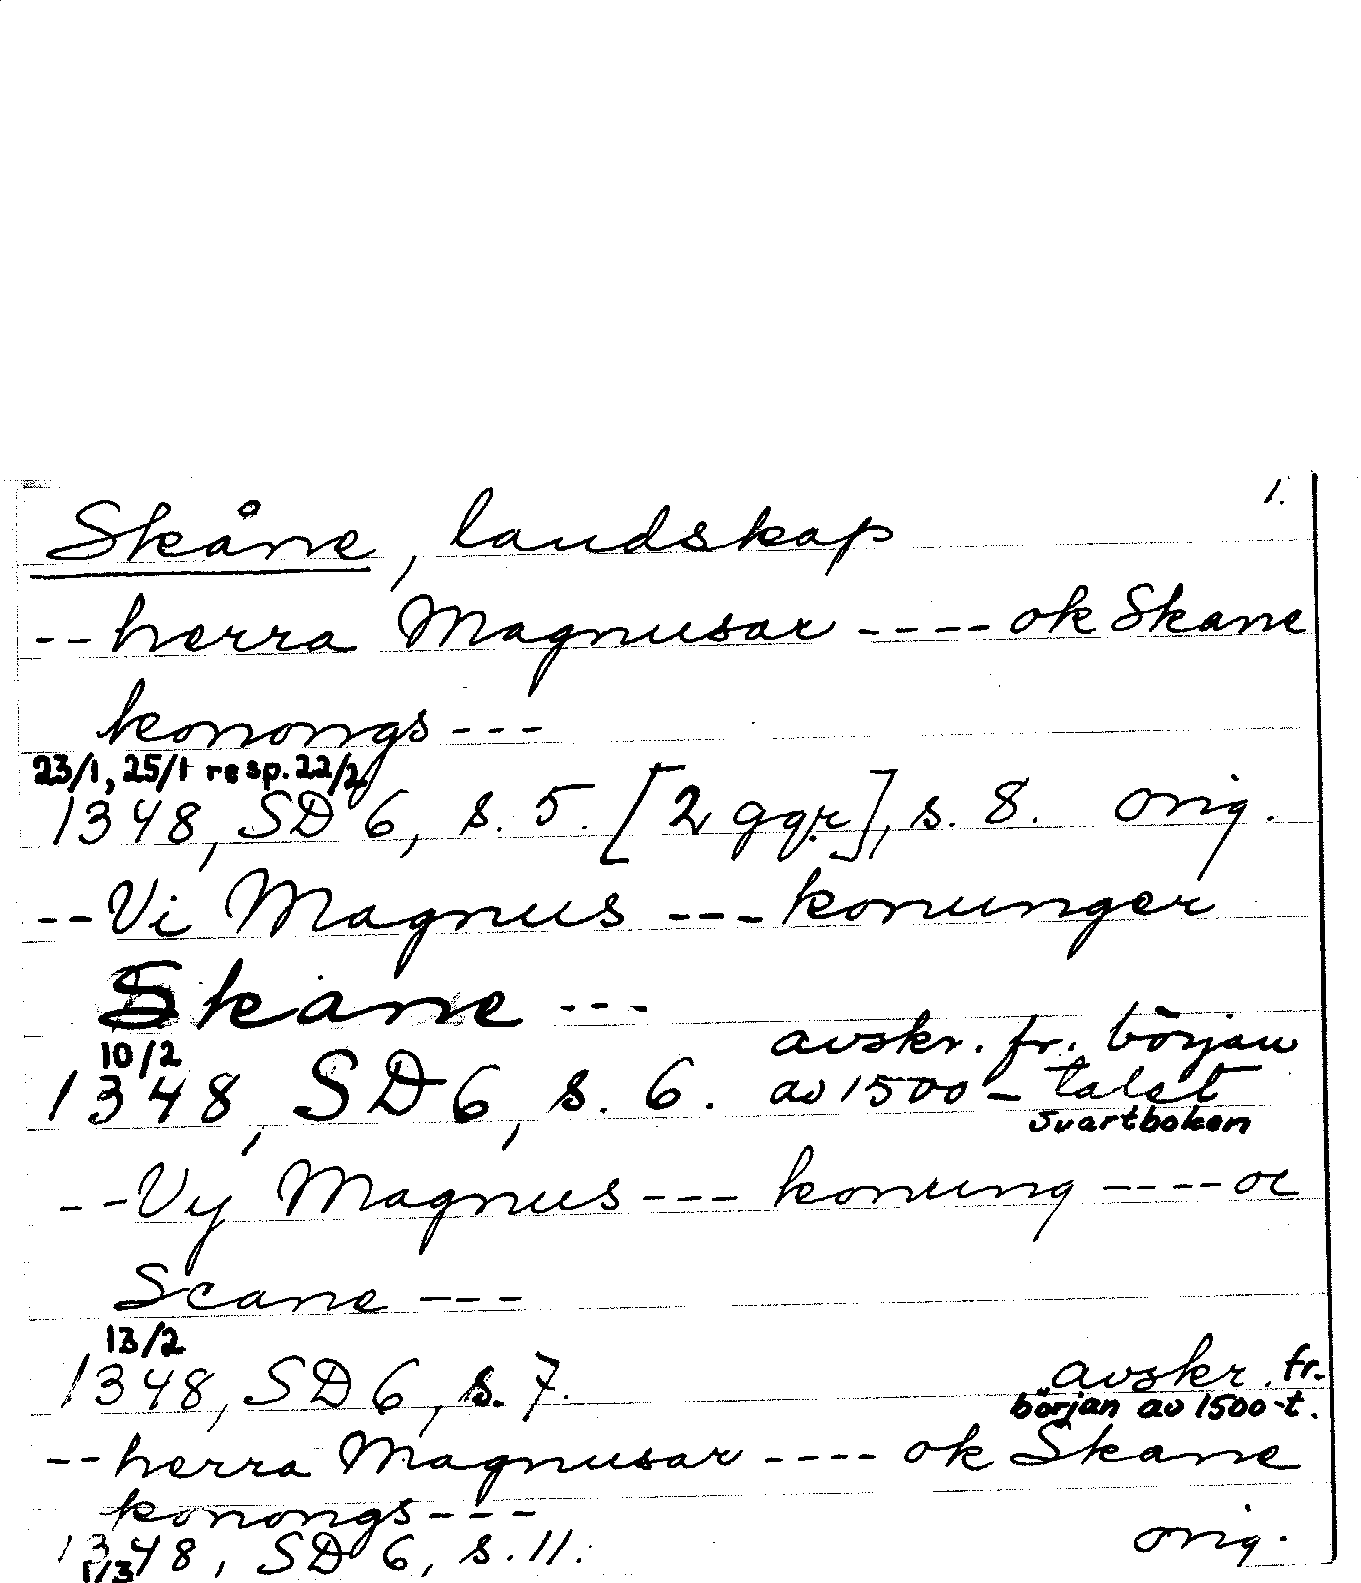 1.
Skåne, landskap
-- herra Magnusar ---- ok Skane
konongs ---
23/1, 25/1 resp. 22/2
1348, SD 6, s. 5. [2 ggr], s. 8. orig.
-- Vi Magnus --- konunger
Skane ---
10/2 avskr. fr. början
1348, SD 6, s. 6. av 1500-talet
Svartboken
-- Vy Magnus --- konung ---- oc
Scane ---
13/2
1348, SD 6, s. 7. avskr. fr.
början av 1500-t.
-- herra Magnusar ---- ok Skane
konongs ---
1348, SD 6, s. 11. orig.
1/3